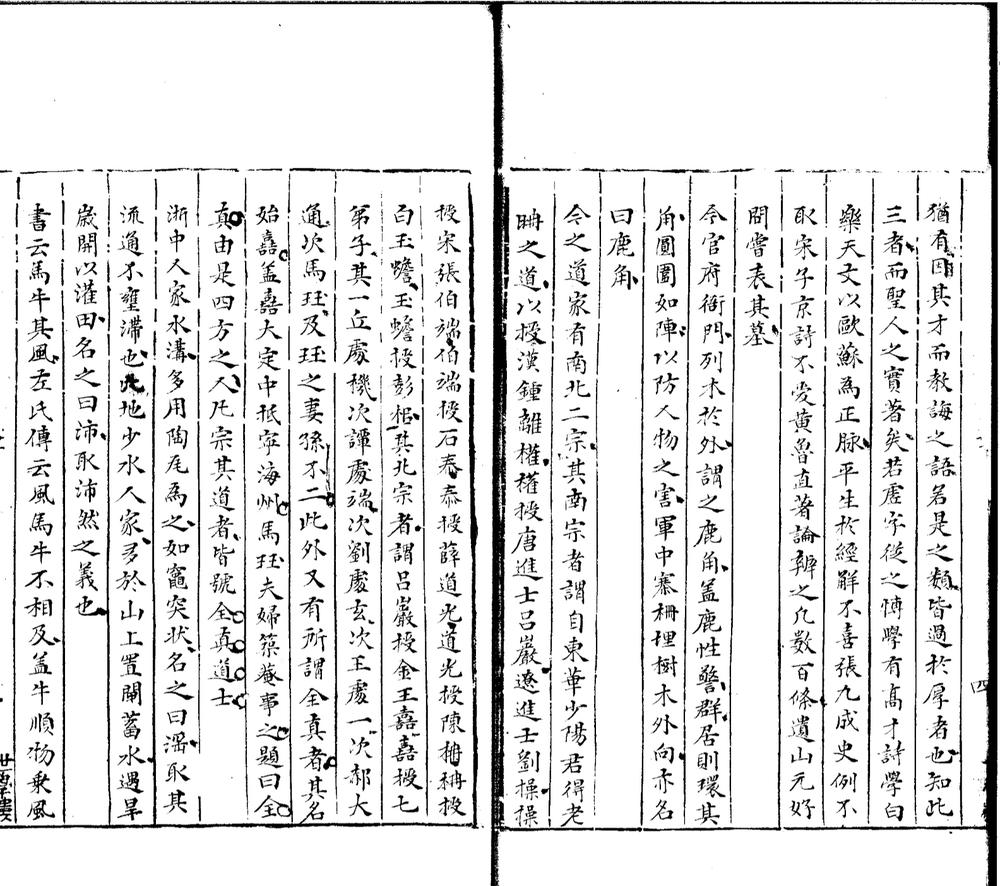 猶有因其才而教誨之語若是之類皆過於厚者也知此
三者而聖人之實著矣若虛字從之博學有高才詩學白
樂天文以歐蘇為正脉平生於經解不喜張九成史例不
取宋子京詩不愛黃魯直著論辨之凡數百條遺山元好
問嘗表其墓
今官府衙門列木於外謂之鹿角盖鹿性警群居則環其
角圓圍如陣以防人物之害軍中寨柵埋樹木外向亦名
曰鹿角
今之道家有南北二宗其南宗者謂自東華少陽君得老
聃之道以授漢鍾離權權授唐進士呂巖遼進士劉操操
授宋張伯端伯端授石泰泰授薛道光道光授陳柟柟授
白玉蟾玉蟾授彭梠其北宗者謂呂巖授金王嘉嘉授七
弟子其一丘處機次譚處端次劉處玄次王處一次郝大
通次馬珏及珏之妻孫不二此外又有所謂全真者其名
始嘉盖嘉大定中抵寧海州馬珏夫婦築菴事之題曰全
真由是四方之人凡宗其道者皆號全真道士
浙中人家水溝多用陶瓦為之如竈突狀名之曰𣹢取其
流通不壅滯也此地少水人家多於山上置閘蓄水遇旱
歲開以灌田名之曰沛取沛然之義也
書云馬牛其風左氏傳云風馬牛不相及盖牛順物乘風
四